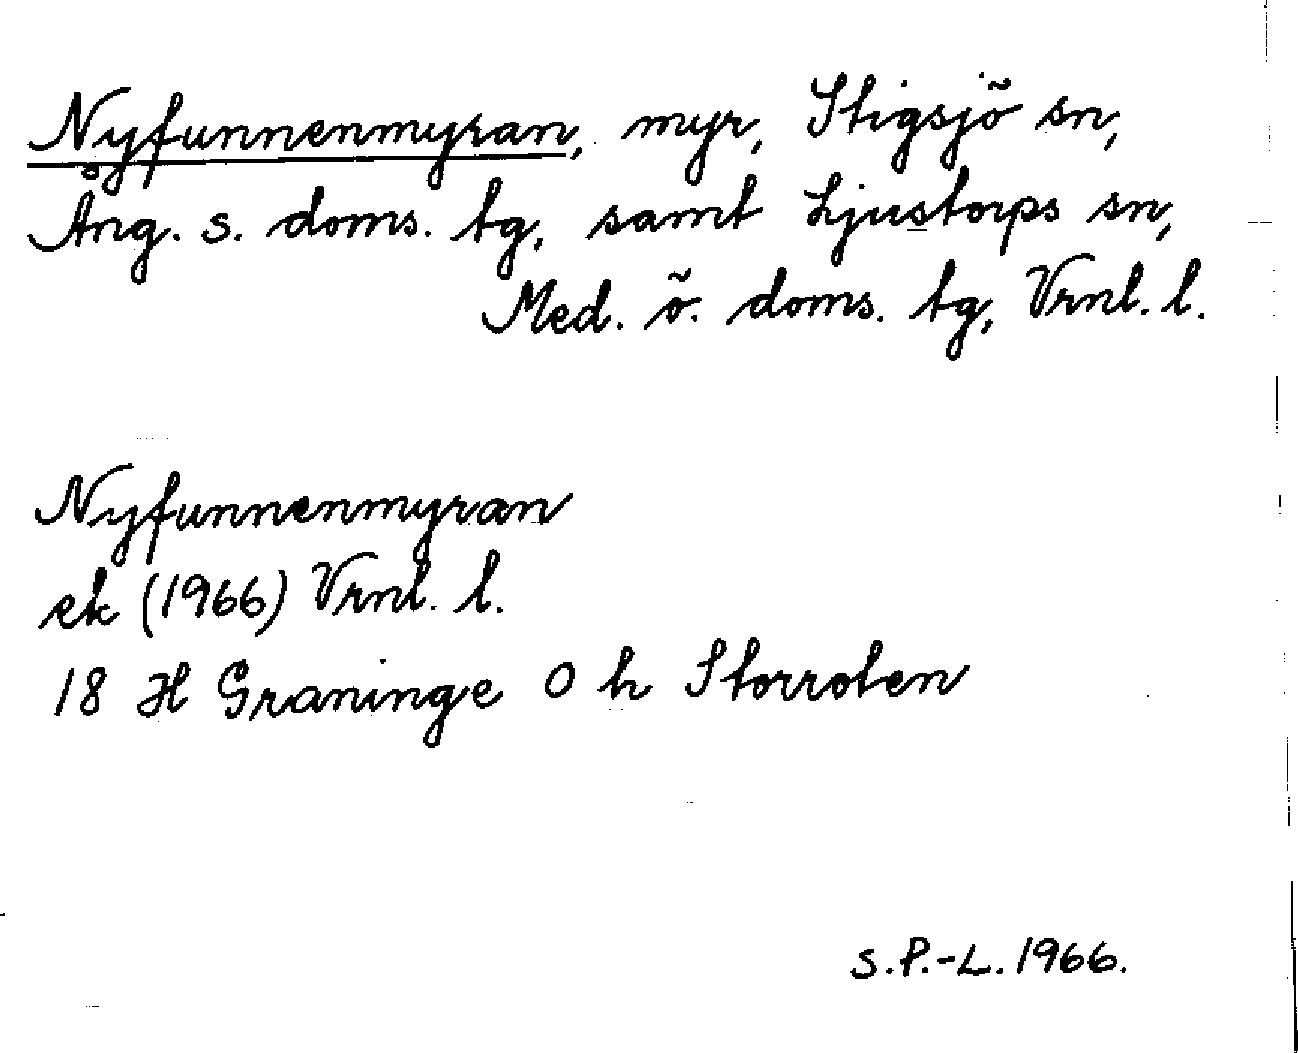 Nyfunnenmyran, myr, Stigsjö sn,
Ång. s. doms. tg, samt Ljustorps sn,
Med. ö. doms. tg, Vrnl. l.
Nyfunnenmyran
ek (1966) Vrnl. l.
18 H Graninge O h Storroten
S.P.-L. 1966.